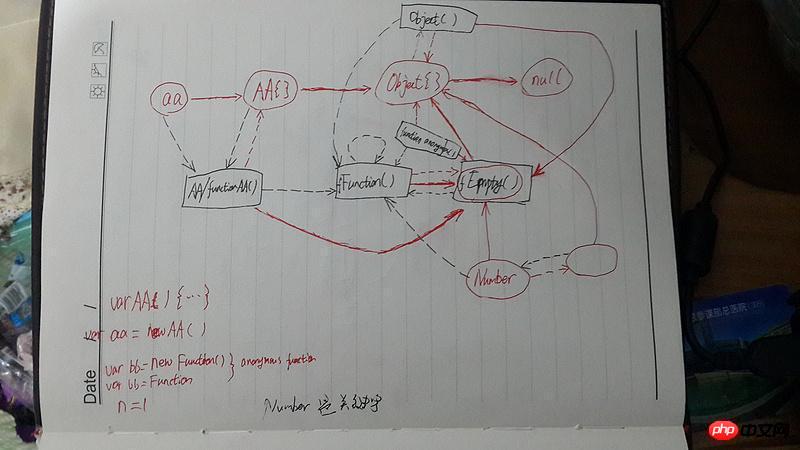 Object()
aa
AA{}
Object{}
null
function anonymous()
AA/function AA()
fFunction()
fEmpty()
Number
var AA( ) {...}
var aa = new AA()
var bb = new Function() } anonymous function
var bb = Function
n = 1
Number 关键字
Date
php 中文网